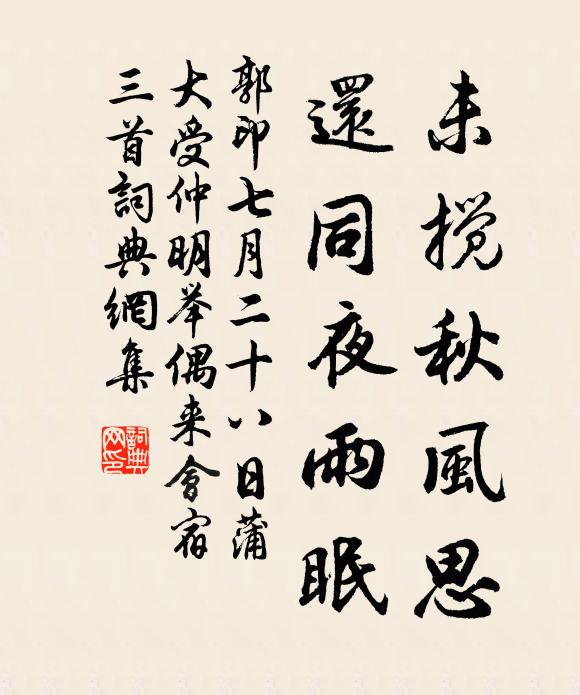 未攬秋風思
還同夜雨眠
郭印七月二十八日蒲
大受仲明举偶来會宿
三首詞典網集
詞典网印